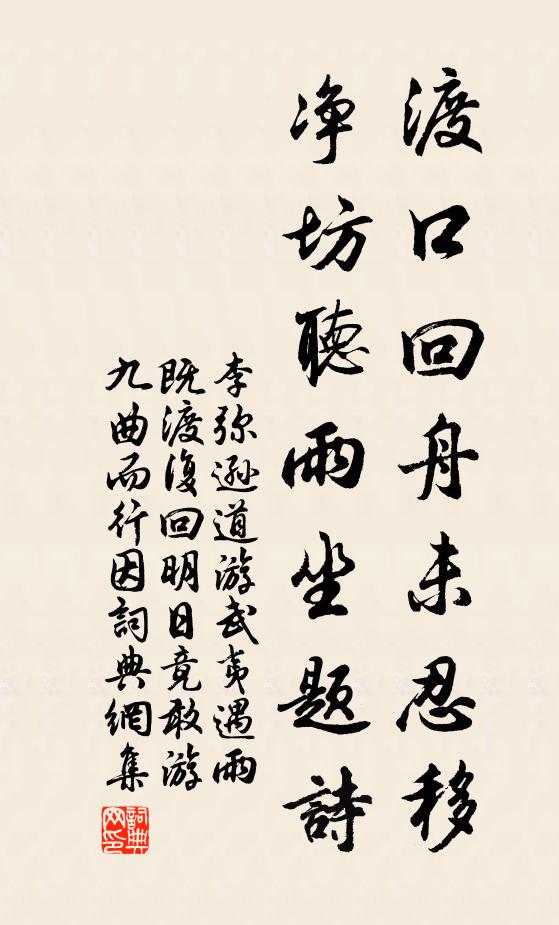 渡口回舟未忍移
净坊聽雨坐題詩
李弥遜道游武夷遇雨
既渡復回明日竟敢游
九曲而行因詞典網集
詞典
网印